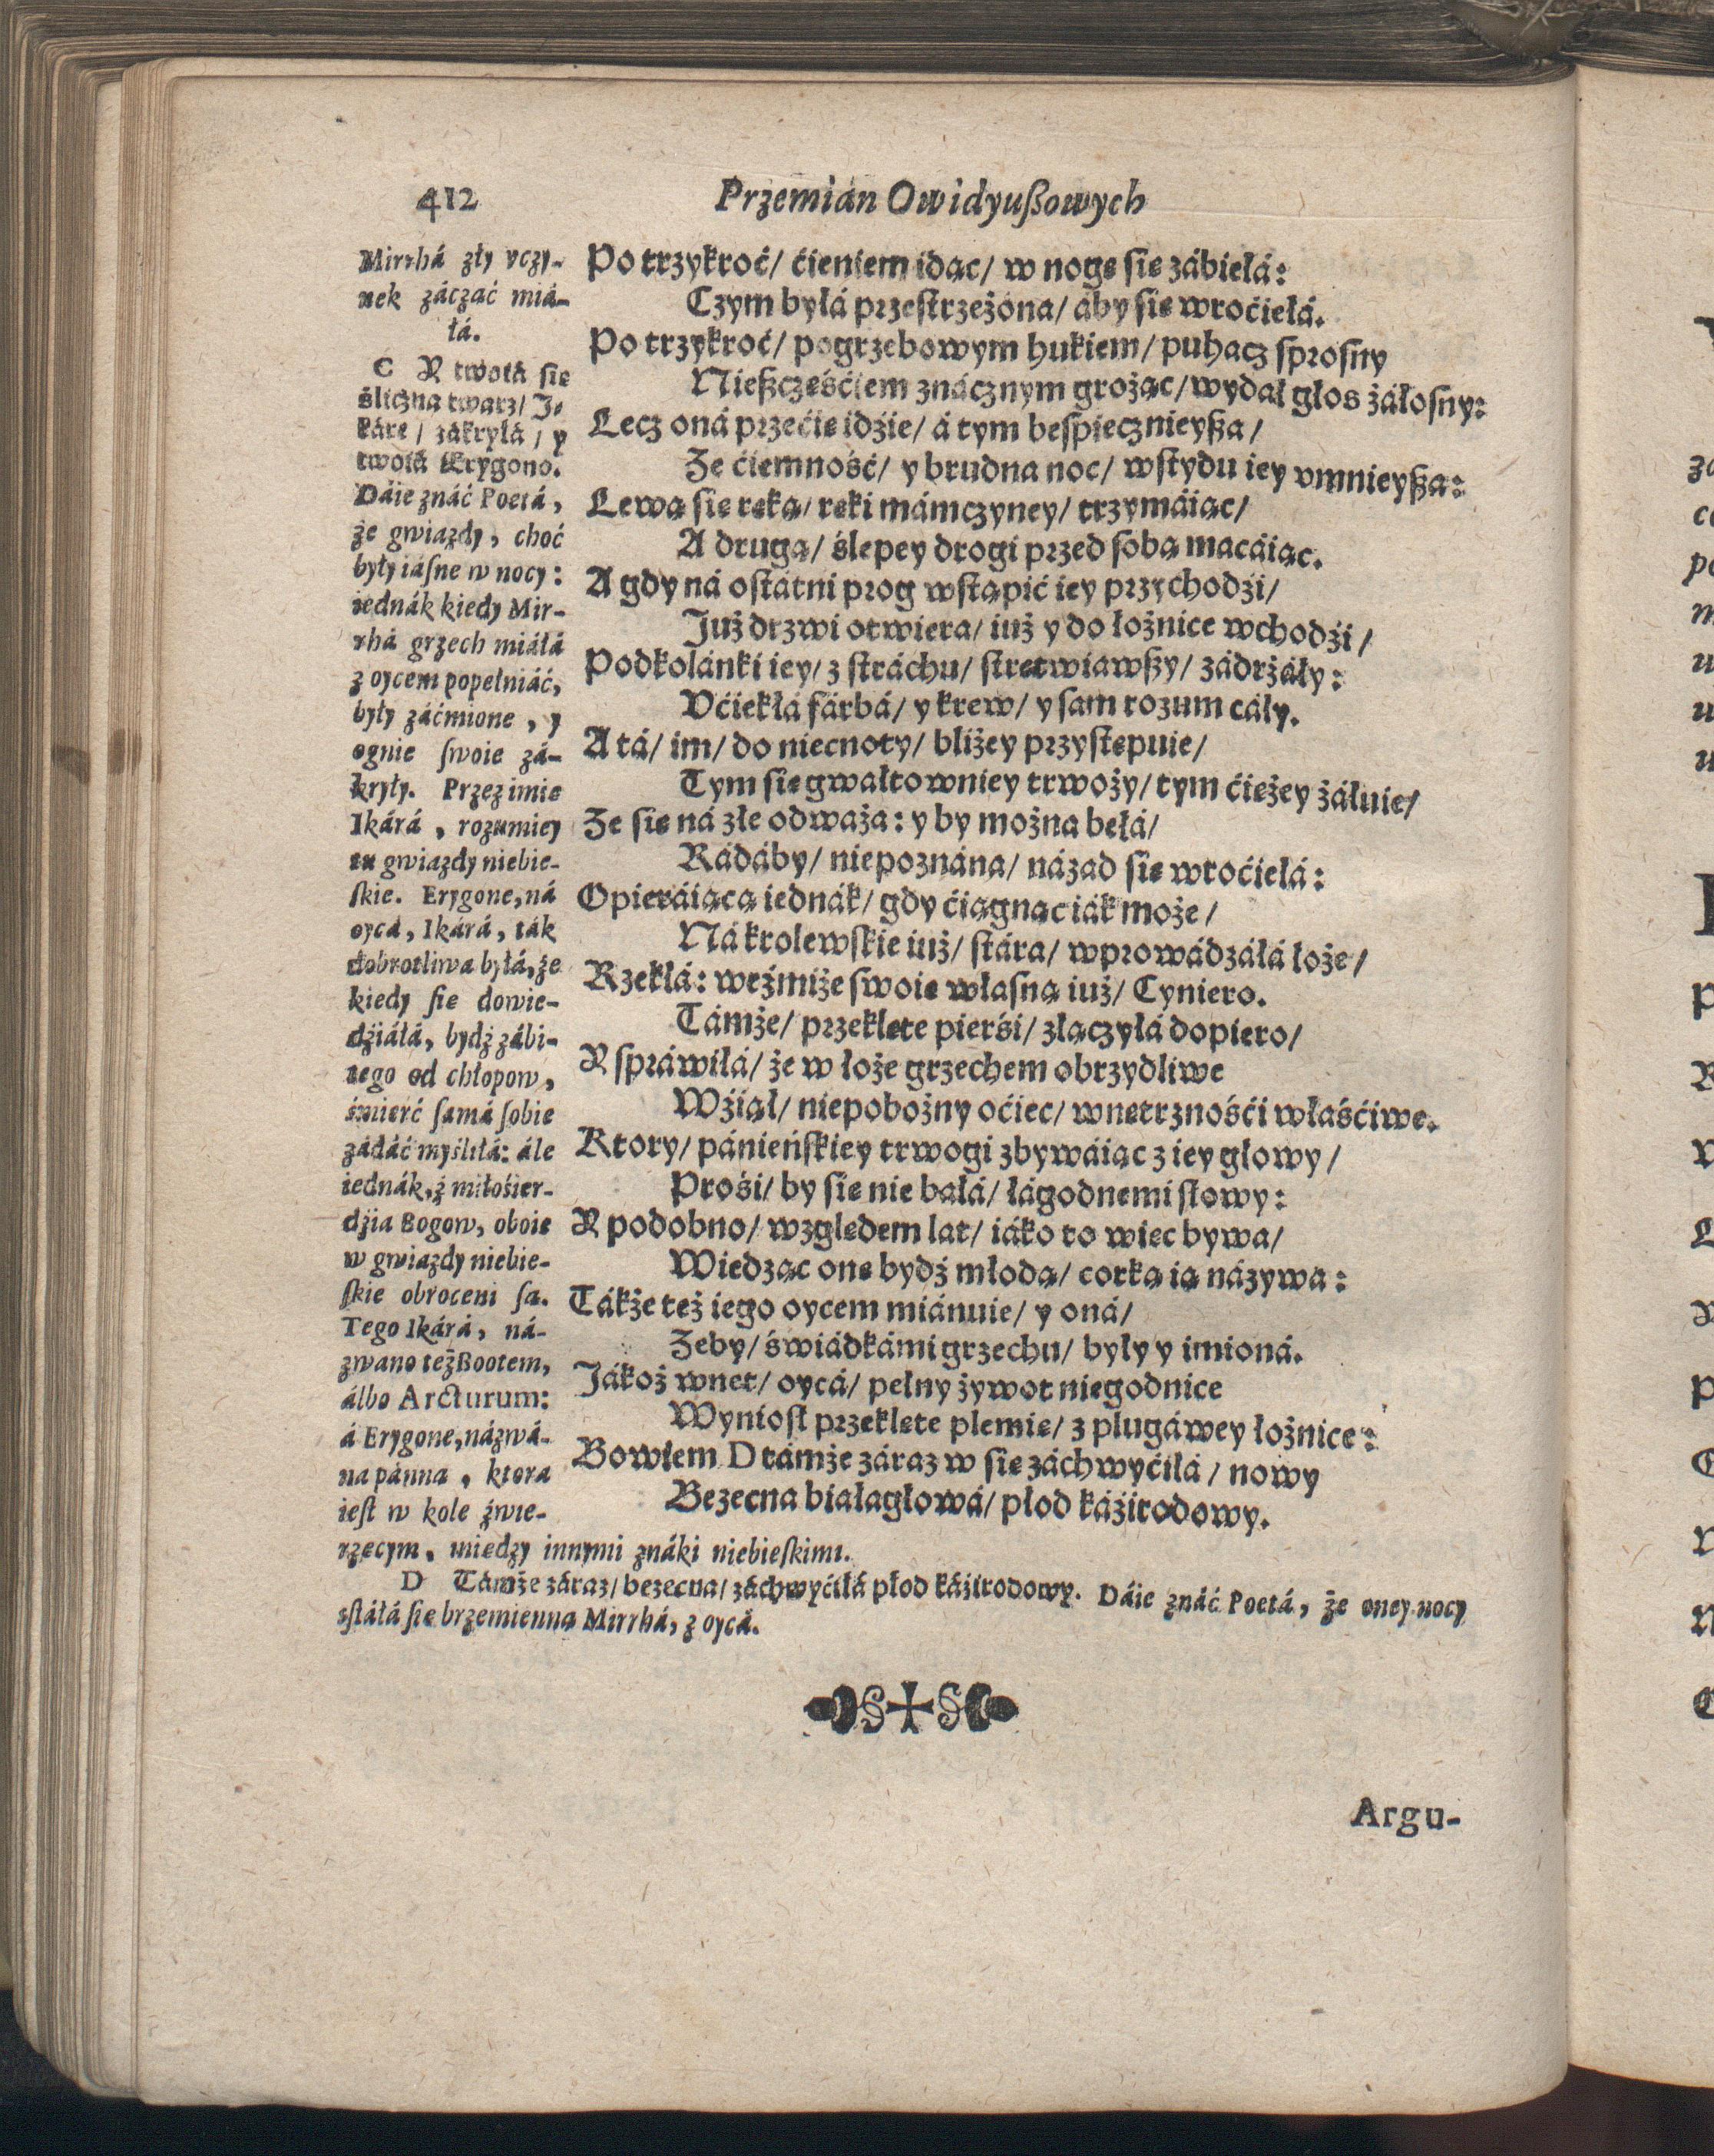 412
Przemian Owidyußowych
Mirrhá zły vczy-
nek záczać miá-
łá.
C Y twoiá się
śliczna twarz/ J-
káre/ zákryłá/ y
twoiá Erygono.
Dáie znáć Poetá,
że gwiazdy, choć
były iáſne w nocy:
iednák kiedy Mir-
rhá grzech miáłá
z oycem popełniáć,
były záćmione, y
ognie ſwoie zá-
kryły. Przez imię
Ikárá, rozumiey
tu gwiazdy niebie-
ſkie. Erygone, ná
oycá, Ikárá, ták
dobrotliwa byłá, że
kiedy ſię dowie-
dźiáłá, bydź zábi-
tego od chłopow,
śmierć ſamá ſobie
zádáć myśliłá: ále
iednák, z miłośier-
dźia Bogow, oboie
w gwiazdy niebie-
ſkie obroceni ſą.
Tego Ikárá, ná-
zwano też Bootem,
álbo Arcturum:
á Erygone, názwá-
na pánna, ktora
ieſt w kole źwie-
rzęcym, miedzy innymi znáki niebieſkimi.
Po trzykroć/ ćieniem idąc/ w nogę się zábiełá:
Czym byłá przestrzeżona/ áby się wroćiełá.
Po trzykroć/ pogrzebowym hukiem/ puhacz sprosny
Nießczęśćiem znácznym grożąc/ wydał głos żáłosny:
Lecz oná przećię idźie/ á tym bespiecznieyßa/
Że ćiemność/ y brudna noc/ wstydu iey vmnieyßa:
Lewą się ręką/ ręki mámczyney/ trzymáiąc/
A drugą/ ślepey drogi przed sobą macáiąc.
A gdy ná ostátni prog wstąpić iey przychodźi/
Już drzwi otwiera/ iuż y do łożnice wchodźi/
Podkolánki iey/ z stráchu/ strętwiawßy/ zádrżáły:
Vćiekłá fárbá/ y krew/ y sam rozum cáły.
A tá/ im/ do niecnoty/ bliżey przystępuie/
Tym się gwałtowniey trwoży/ tym ćiężey żáłuie/
Że się ná złe odważa: y by można bełá/
Rádáby/ niepoznána/ názad się wroćiełá:
Opieráiącą iednák/ gdy ćiągnąc iák może/
Ná krolewskie iuż/ stára/ wprowádzáłá łoże/
Rzekłá: weźmiże swoię własną iuż/ Cyniero.
Támże/ przeklęte pierśi/ złączyłá dopiero/
Y spráwiłá/ że w łoże grzechem obrzydliwe
Wźiął/ niepobożny oćiec/ wnętrznośći właśćiwe.
Ktory/ pánieńskiey trwogi zbywáiąc z iey głowy/
Prośi/ by się nie bałá/ łágodnemi słowy:
Y podobno/ względem lat/ iáko to więc bywa/
Wiedząc onę bydź młodą/ corką ią názywa:
Tákże też iego oycem miánuie/ y oná/
Żeby/ świádkámi grzechu/ były y imioná.
Jákoż wnet/ oycá/ pełny żywot niegodnice
Wyniosł przeklęte plemię/ z plugáwey łożnice:
Bowiem D támże záraz w się záchwyćiłá/ nowy
Bezecna białagłowá/ płod káźirodowy.
D Támże záraz/ bezecna/ záchwyćiłá płod káźirodowy. Dáie znáć Poetá, że oney nocy
sſtáłá ſię brzemienną Mirrhá, z oycá.
Argu-